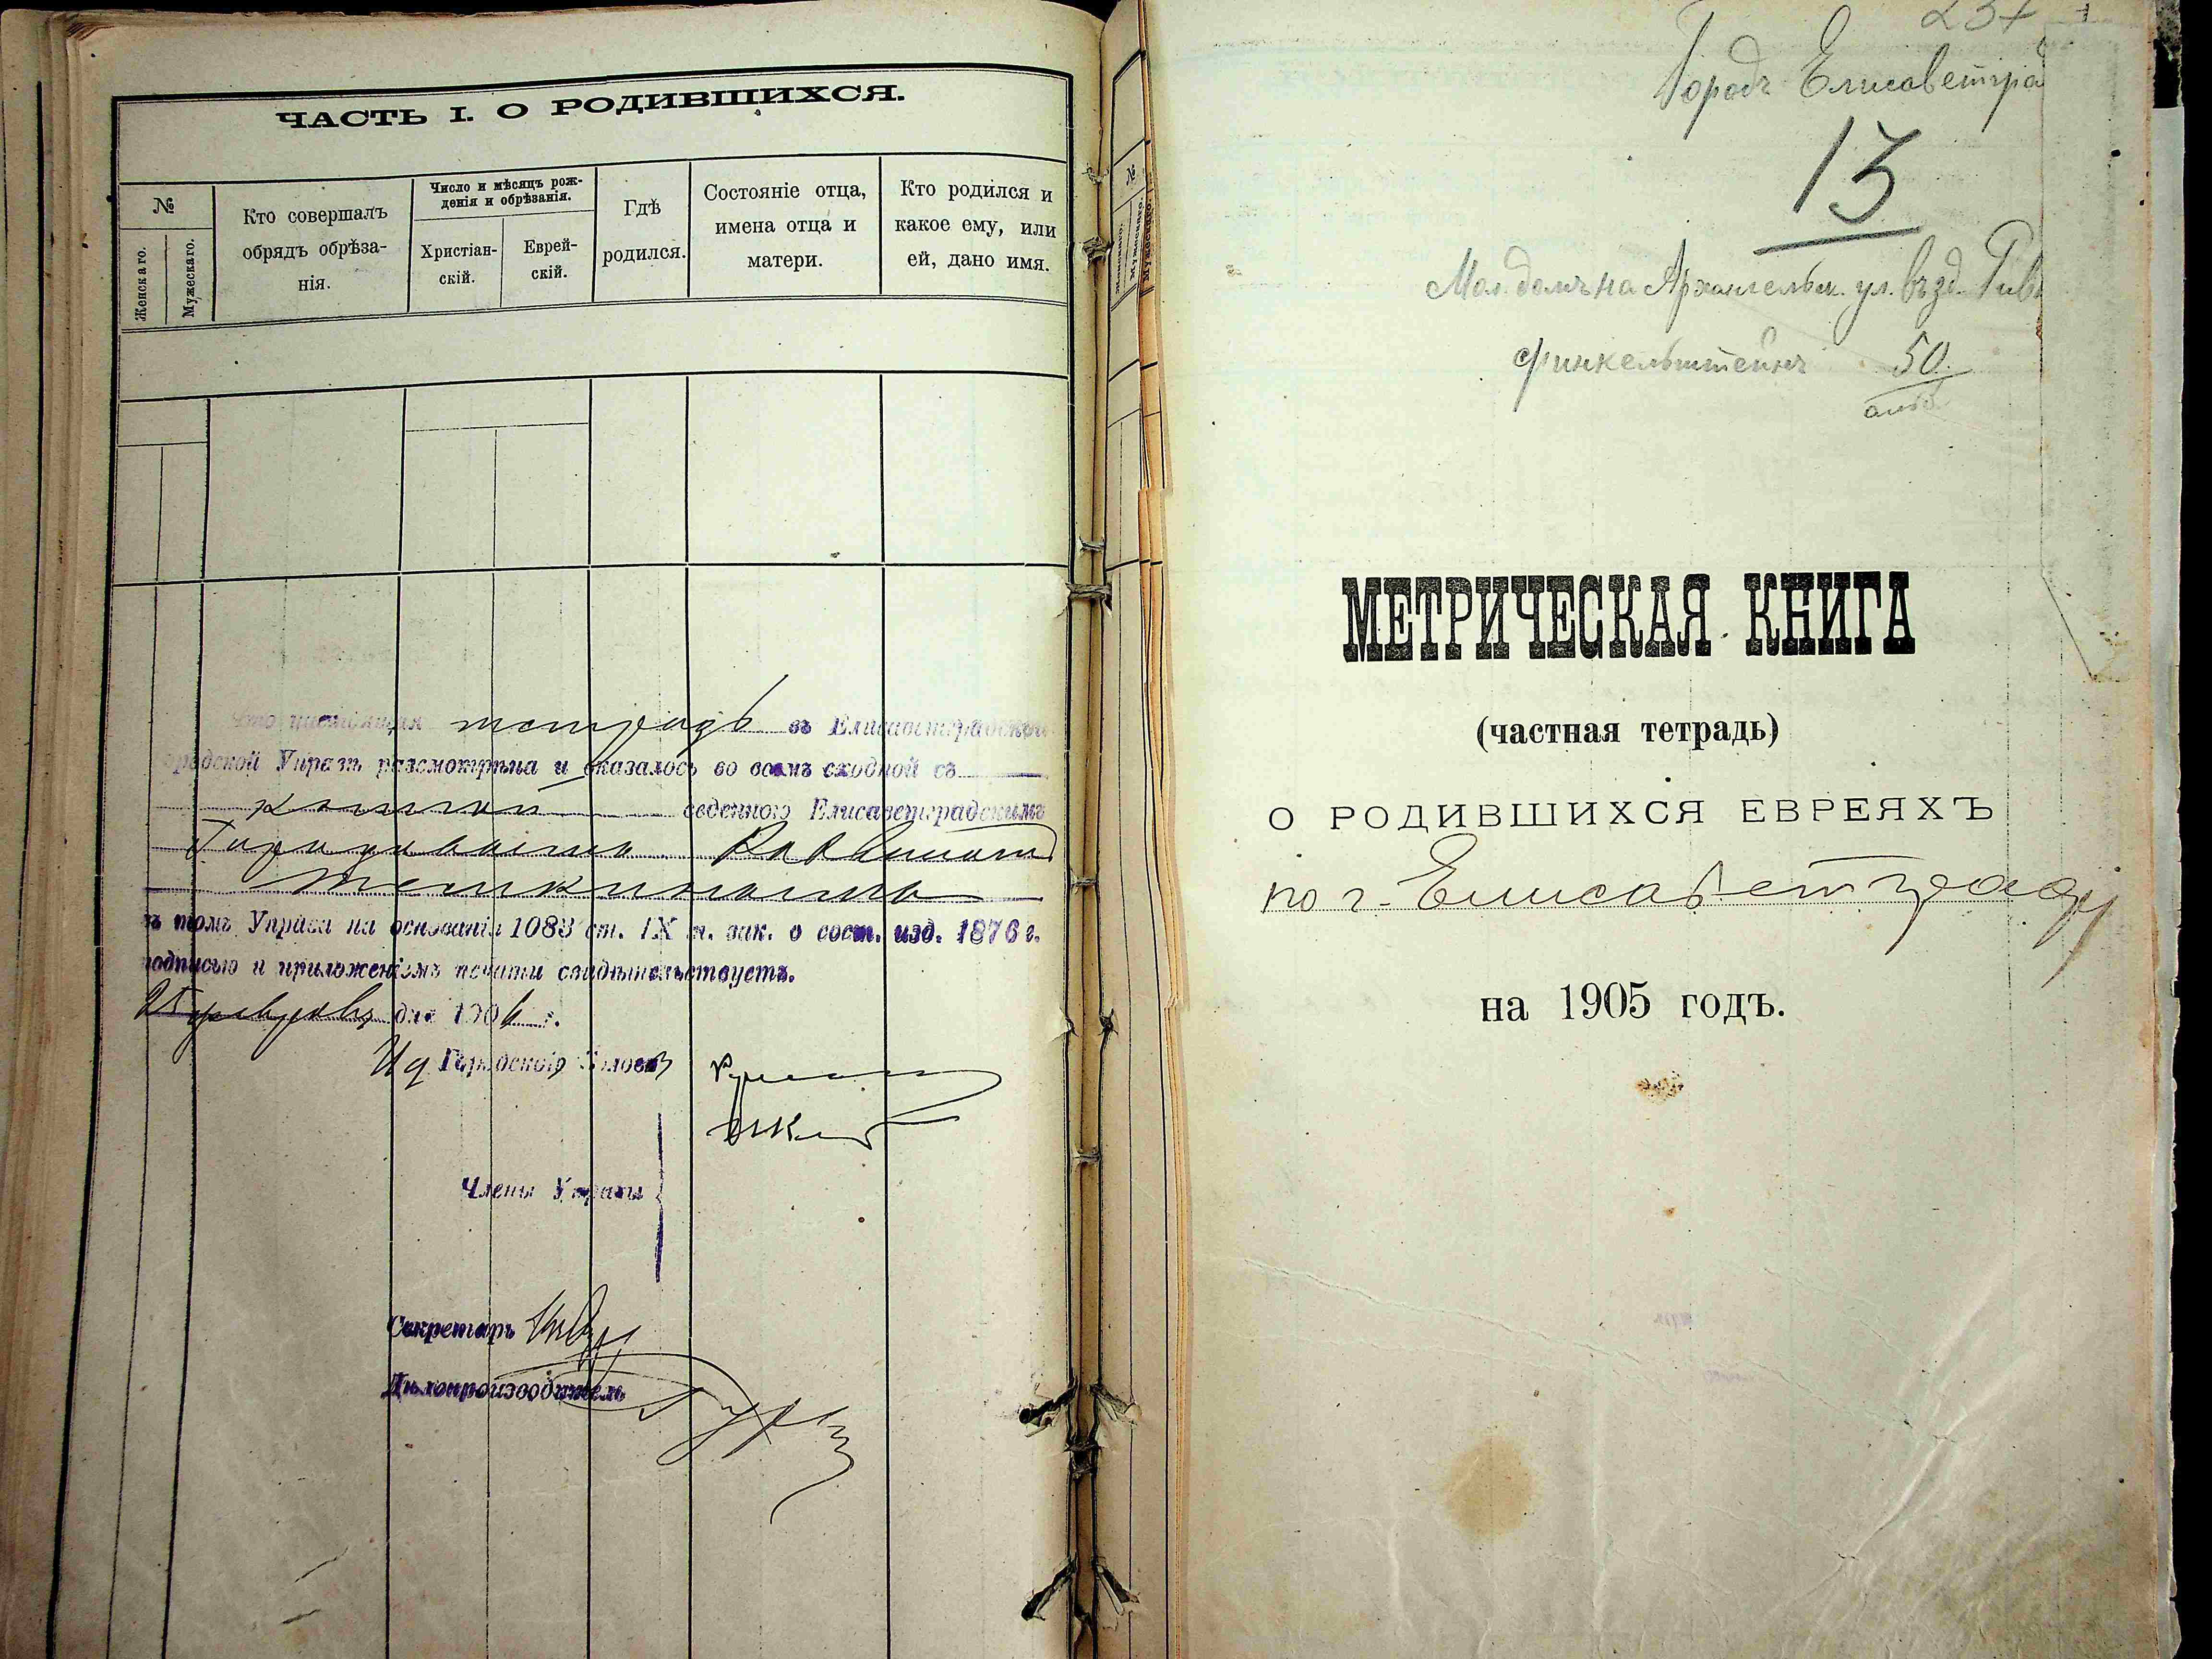 ЧАСТЬ I. О РОДИВШИХСЯ.
№
Женскаго.
Мужескаго.
Кто совершалъ
обрядъ обрѣза-
нія.
Число и мѣсяцъ рож-
денія и обрѣзанія.
Христіан-
скій.
Еврей-
скій.
Гдѣ
родился.
Состояніе отца,
имена отца и
матери.
Кто родился и
какое ему, или
ей, дано имя.
Что настоящая тетрадь въ Елисаветградской
Городской Управѣ разсмотрѣна и оказалось во всемъ сходной съ
книгой веденною Елисаветградскимъ
Городовымъ Раввиномъ
въ томъ Управа на основаніи 1083 ст. IX т. зак. о сост. изд. 1876 г.
подписью и приложеніемъ печати свидѣтельствуетъ.
дня 1906 г.
Ид Городского Головы
Члены Управы
Секретарь
Дѣлопроизводитель
№
Женскаго.
Мужескаго.
Мужескаго.
237
Городъ Елисаветгра
13
Мол. домъ на Архангельск. ул. въ зд.
Финкельштейнъ 50
МЕТРИЧЕСКАЯ КНИГА
(частная тетрадь)
О РОДИВШИХСЯ ЕВРЕЯХЪ
по г. Елисаветграду
на 1905 годъ.